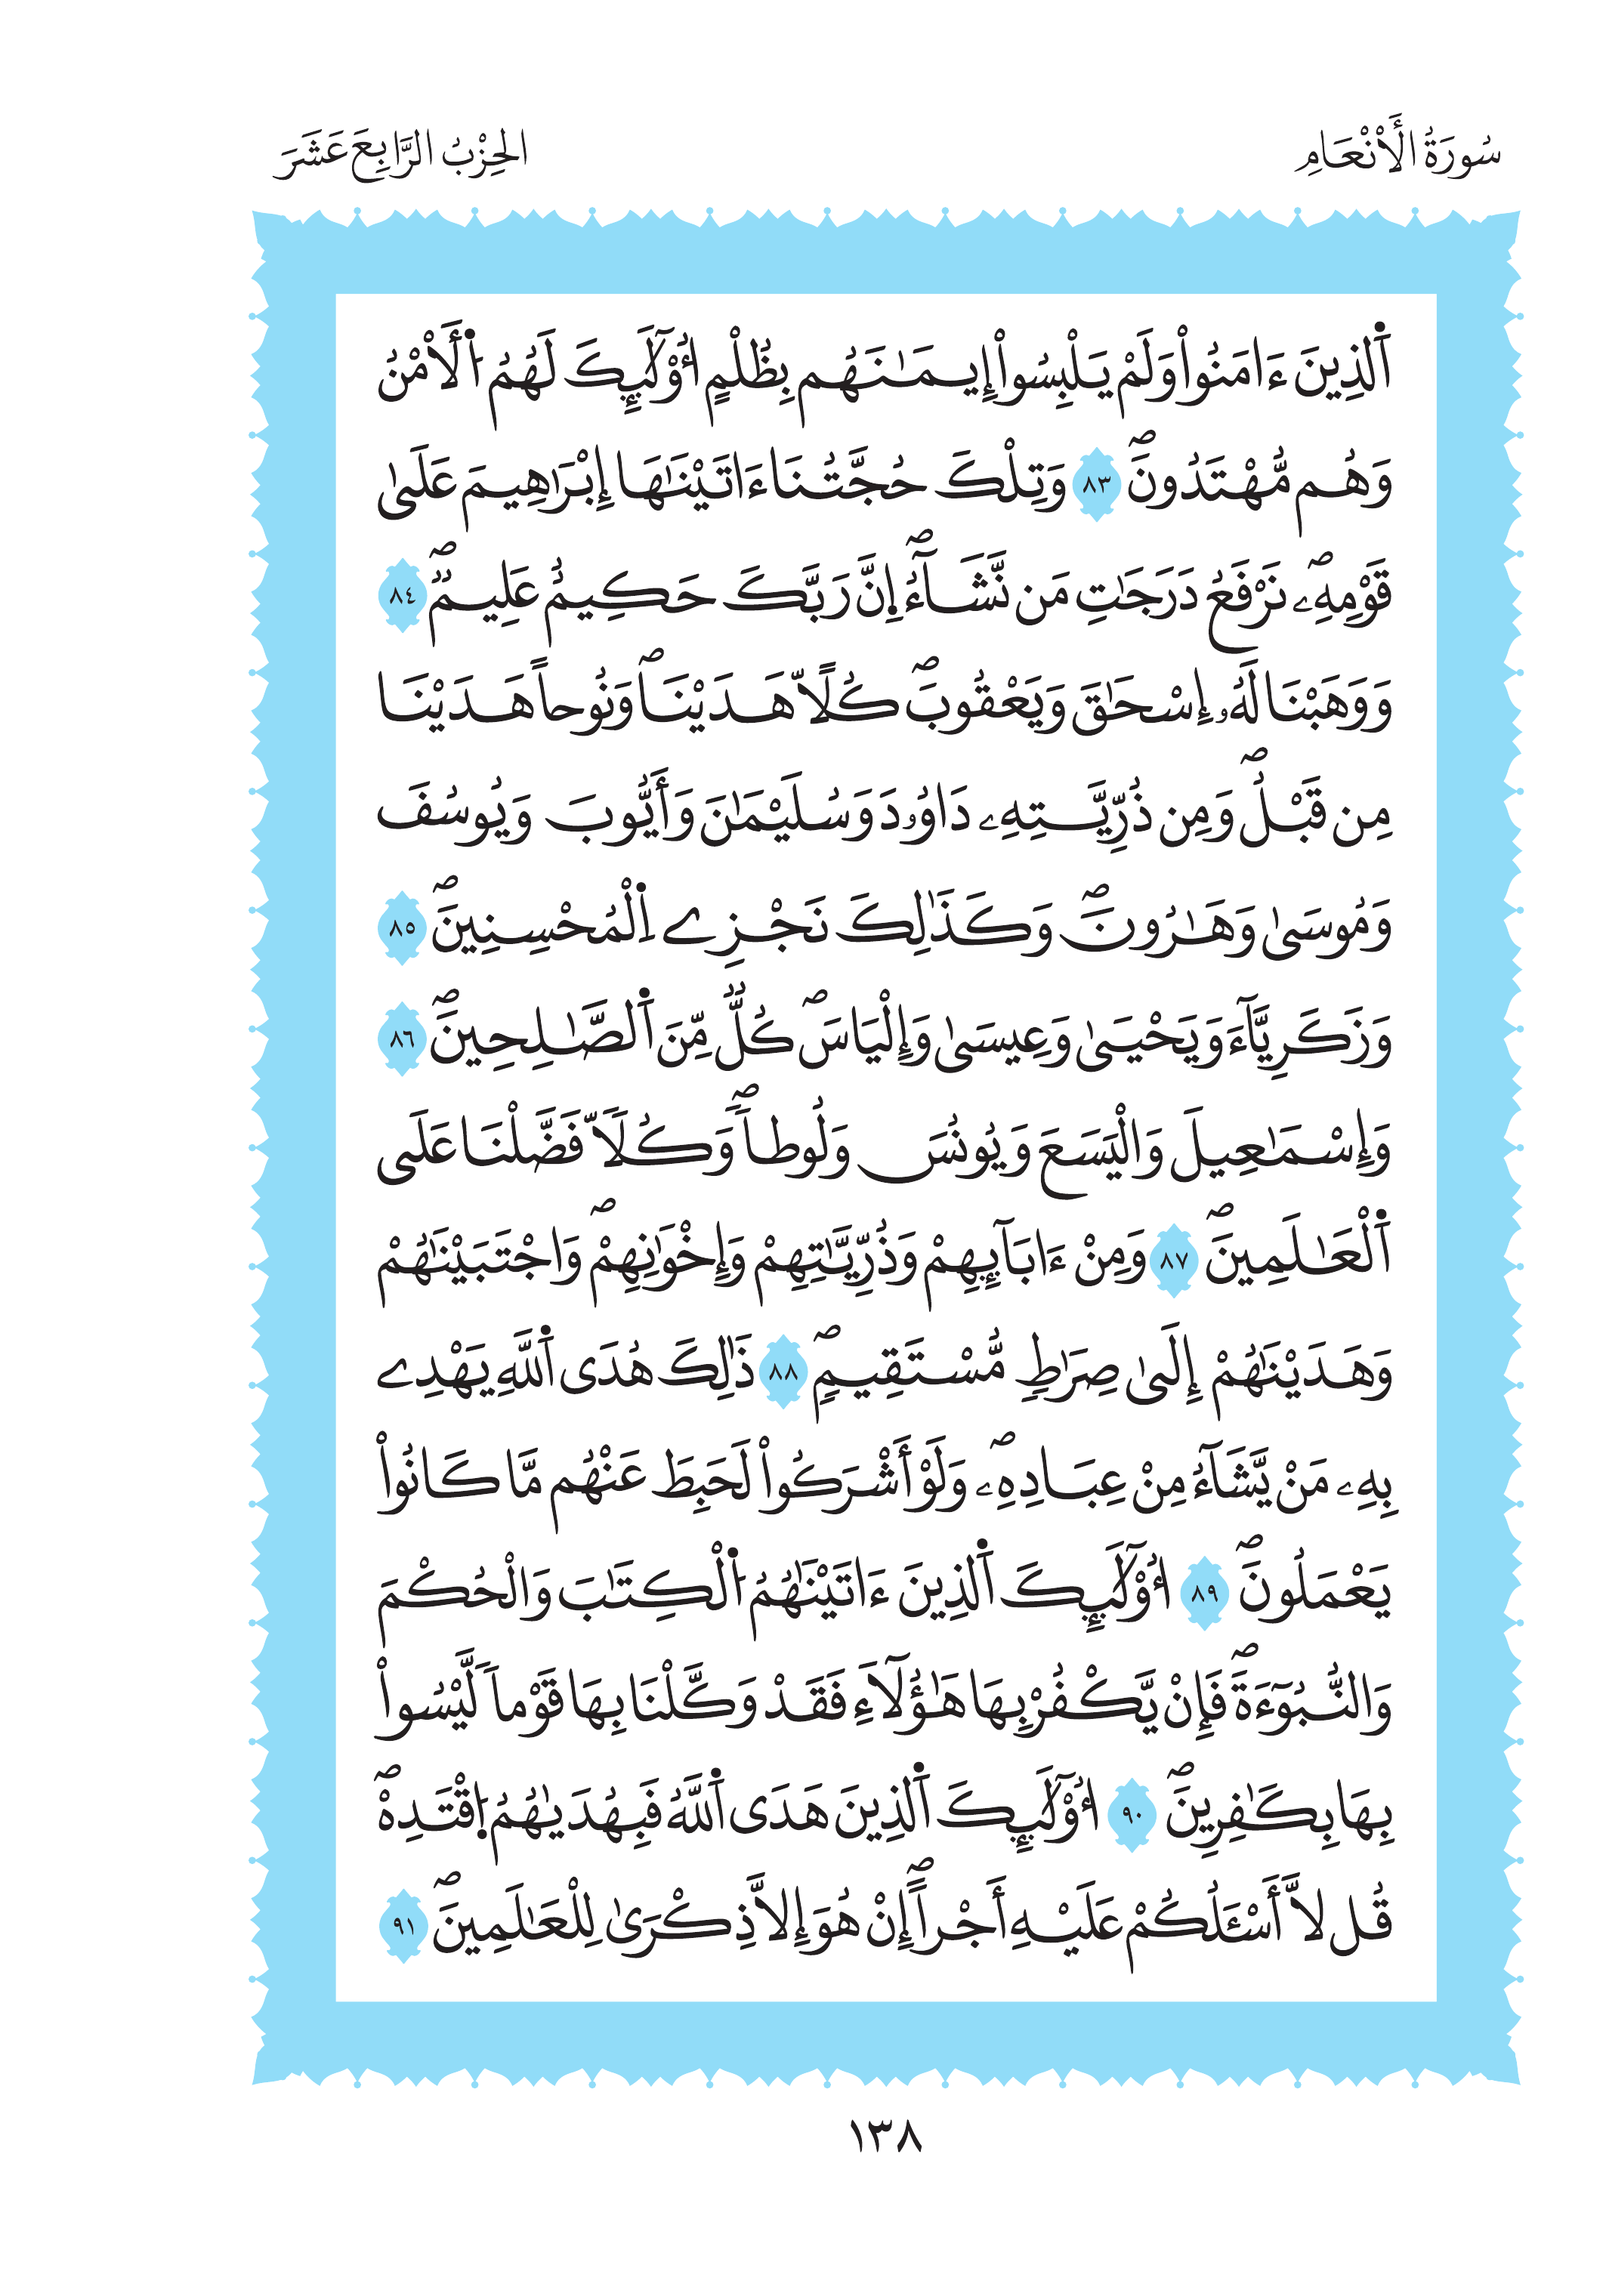 سُورَةُ الْأَنْعَامِ
الحِزْبُ الرَّابِعَ عَشَرَ
اَ۬لذِينَ ءَامَنُواْ وَلَمْ يَلْبِسُواْ إِيمَٰنَهُم بِظُلْمٍ ا۟وْلَٰٓئِكَ لَهُمُ اُ۬لَامْنُ
وَهُم مُّهْتَدُونَۖ ٨٣ وَتِلْكَ حُجَّتُنَا ءَاتَيْنَٰهَا إِبْرَٰهِيمَ عَلَىٰ
قَوْمِهِۦۖ نَرْفَعُ دَرَجَٰتِ مَن نَّشَآءُۖ اِنَّ رَبَّكَ حَكِيمٌ عَلِيمٌۖ ٨٤
وَوَهَبْنَا لَهُۥ إِسْحَٰقَ وَيَعْقُوبَۖ كُلّاً هَدَيْنَاۖ وَنُوحاً هَدَيْنَا
مِن قَبْلُۖ وَمِن ذُرِّيَّتِهِۦ دَاوُۥدَ وَسُلَيْمَٰنَ وَأَيُّوبَ وَيُوسُفَ
وَمُوسَىٰ وَهَٰرُونَۖ وَكَذَٰلِكَ نَجْزِے اِ۬لْمُحْسِنِينَۖ ٨٥
وَزَكَرِيَّآءَ وَيَحْيَىٰ وَعِيسَىٰ وَإِلْيَاسَۖ كُلٌّ مِّنَ اَ۬لصَّٰلِحِينَۖ ٨٦
وَإِسْمَٰعِيلَ وَالْيَسَعَ وَيُونُسَ وَلُوطاٗۖ وَكُلّاٗ فَضَّلْنَا عَلَى
اَ۬لْعَٰلَمِينَۖ ٨٧ وَمِنْ ءَابَآئِهِمْ وَذُرِّيَّٰتِهِمْ وَإِخْوَٰنِهِمْۖ وَاجْتَبَيْنَٰهُمْ
وَهَدَيْنَٰهُمْ إِلَىٰ صِرَٰطٍ مُّسْتَقِيمٍۖ ٨٨ ذَٰلِكَ هُدَى اَ۬للَّهِ يَهْدِے
بِهِۦ مَنْ يَّشَآءُ مِنْ عِبَادِهِۦۖ وَلَوْ أَشْرَكُواْ لَحَبِطَ عَنْهُم مَّا كَانُواْ
يَعْمَلُونَۖ ٨٩ ا۟وْلَٰٓئِكَ اَ۬لذِينَ ءَاتَيْنَٰهُمُ اُ۬لْكِتَٰبَ وَالْحُكْمَ
وَالنُّبُوٓءَةَۖ فَإِنْ يَّكْفُرْ بِهَا هَٰٓؤُلَآءِ فَقَدْ وَكَّلْنَا بِهَا قَوْماٗ لَّيْسُواْ
بِهَا بِكَٰفِرِينَۖ ٩٠ ا۟وْلَٰٓئِكَ اَ۬لذِينَ هَدَى اَ۬للَّهُ فَبِهُدَيٰهُمُ اُ۪قْتَدِهْۖ
قُل لَّا أَسْـَٔلُكُمْ عَلَيْهِ أَجْراًۖ إِنْ هُوَ إِلَّا ذِكْرَىٰ لِلْعَٰلَمِينَۖ ٩١
١٣٨